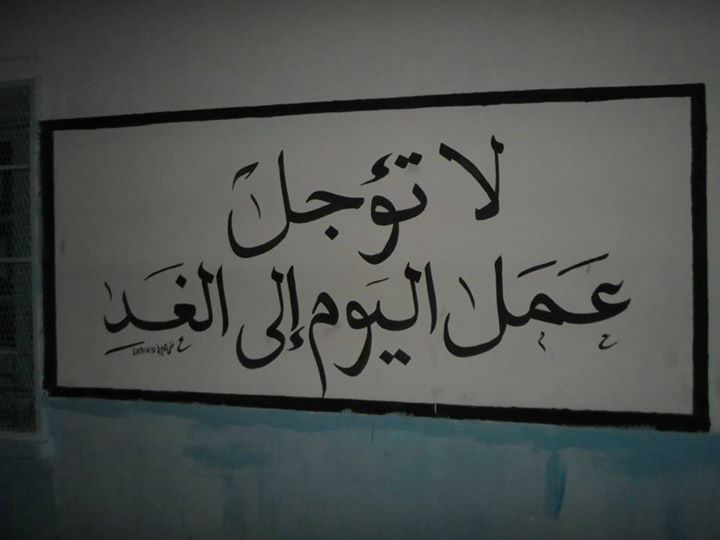 لا تؤجل
عَمَل اليَوم إلى الغَدِ